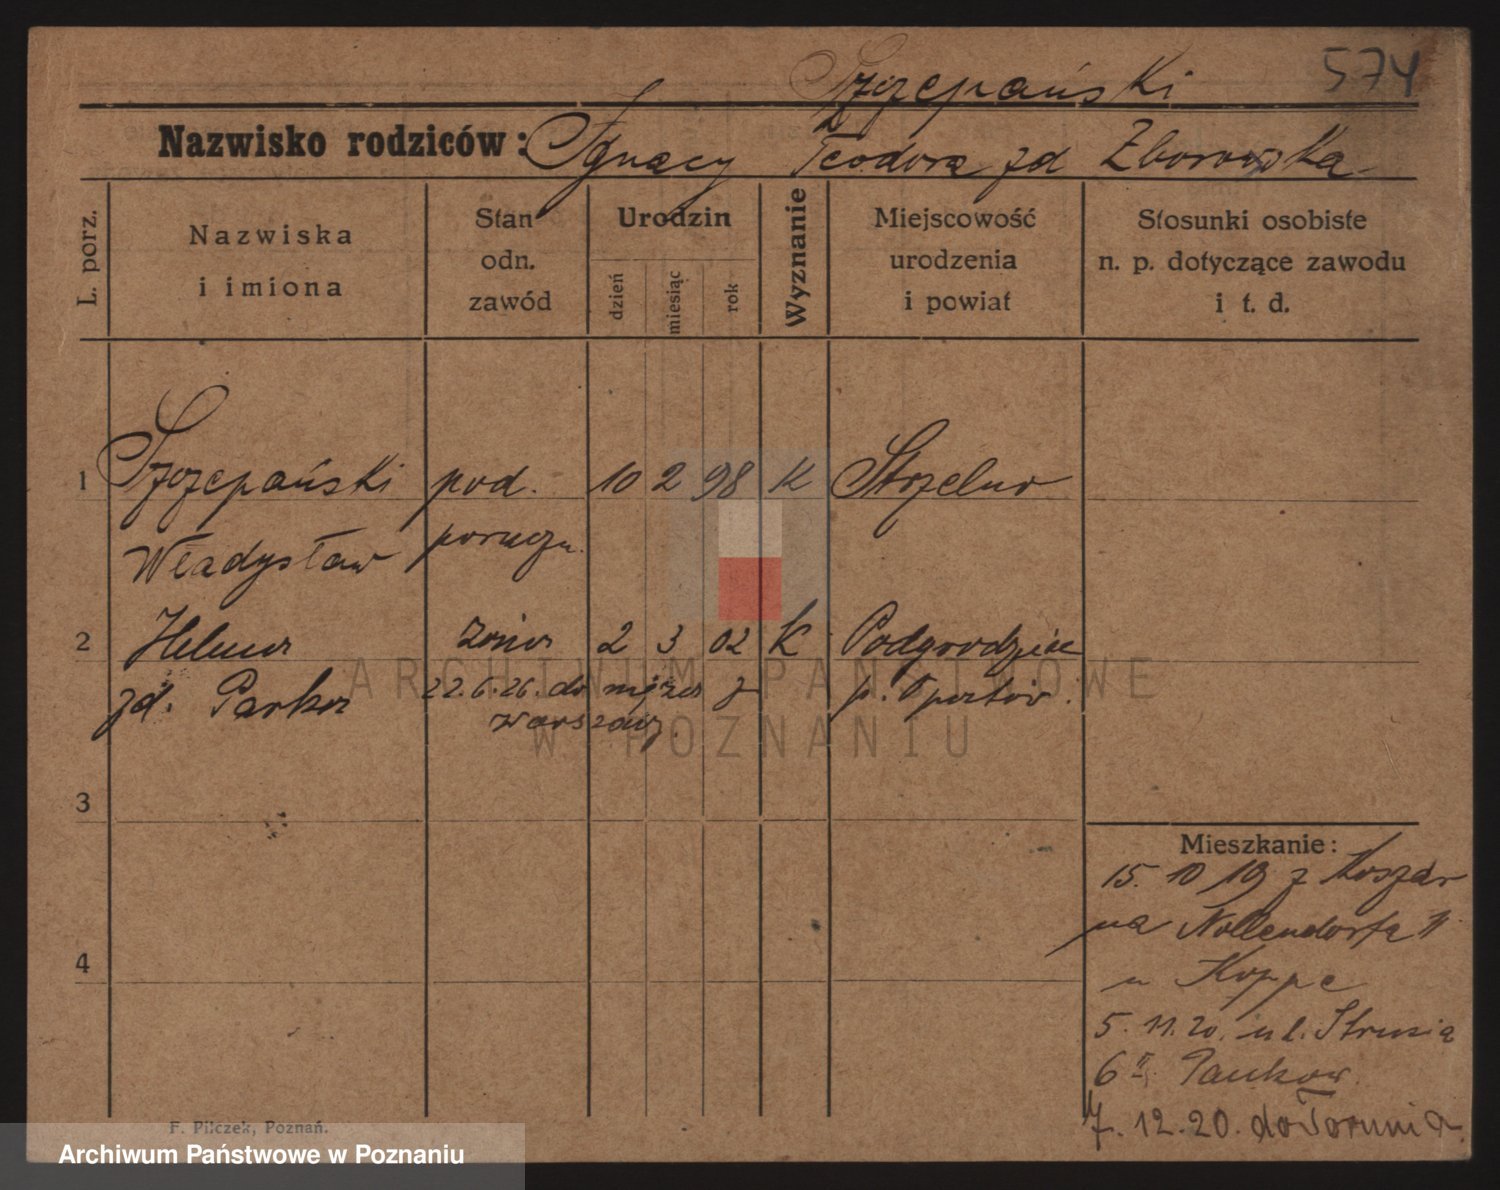 574
Szczepański
Nazwisko rodziców: Ignacy Teodora zd Zborowska
L. porz.
Nazwiska
i imiona
Stan
odn.
zawód
Urodzin
dzień
miesiąc
rok
Wyznanie
Miejscowość
urodzenia
i powiat
Stosunki osobiste
n. p. dotyczące zawodu
i t. d.
1 Szczepański pod. 10 2 98 K Strzelno
Władysław porucz.
2 Helena żona 2 3 02 K Podgrodzie
zd. Parka 22.6.26. do p. Opatów.
Warszawy.
3
4
Mieszkanie:
15. 10 19 z Koszar
na Nollendorfa 11
u Koppe
5. 11. 20. ul. Strusia
6 II. Paukow
7. 12. 20. do Torunia
F. Pilczek, Poznań.
ARCHIWUM PAŃSTWOWE
W POZNANIU
Archiwum Państwowe w Poznaniu